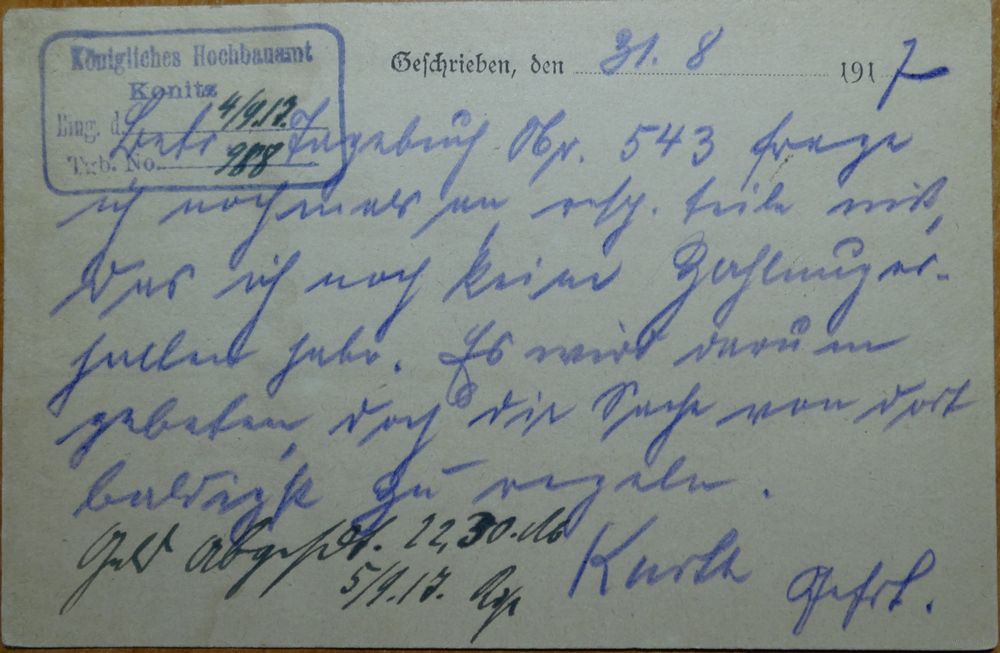 Königliches Hochbauamt
Konitz
Eing. d. 4/9.17.
Tgb. No. 988
Geschrieben, den 31. 8 1917
Betr. Tagebuch Nr. 543 frage
ich nochmals an resp. teile mit,
das ich noch keine Zahlung er-
halten habe. Es wird darum
gebeten, doch die Sache von dort
baldigst zu regeln.
Geld abgesdt. 22,30. M
5/9.17.
Gefrt.